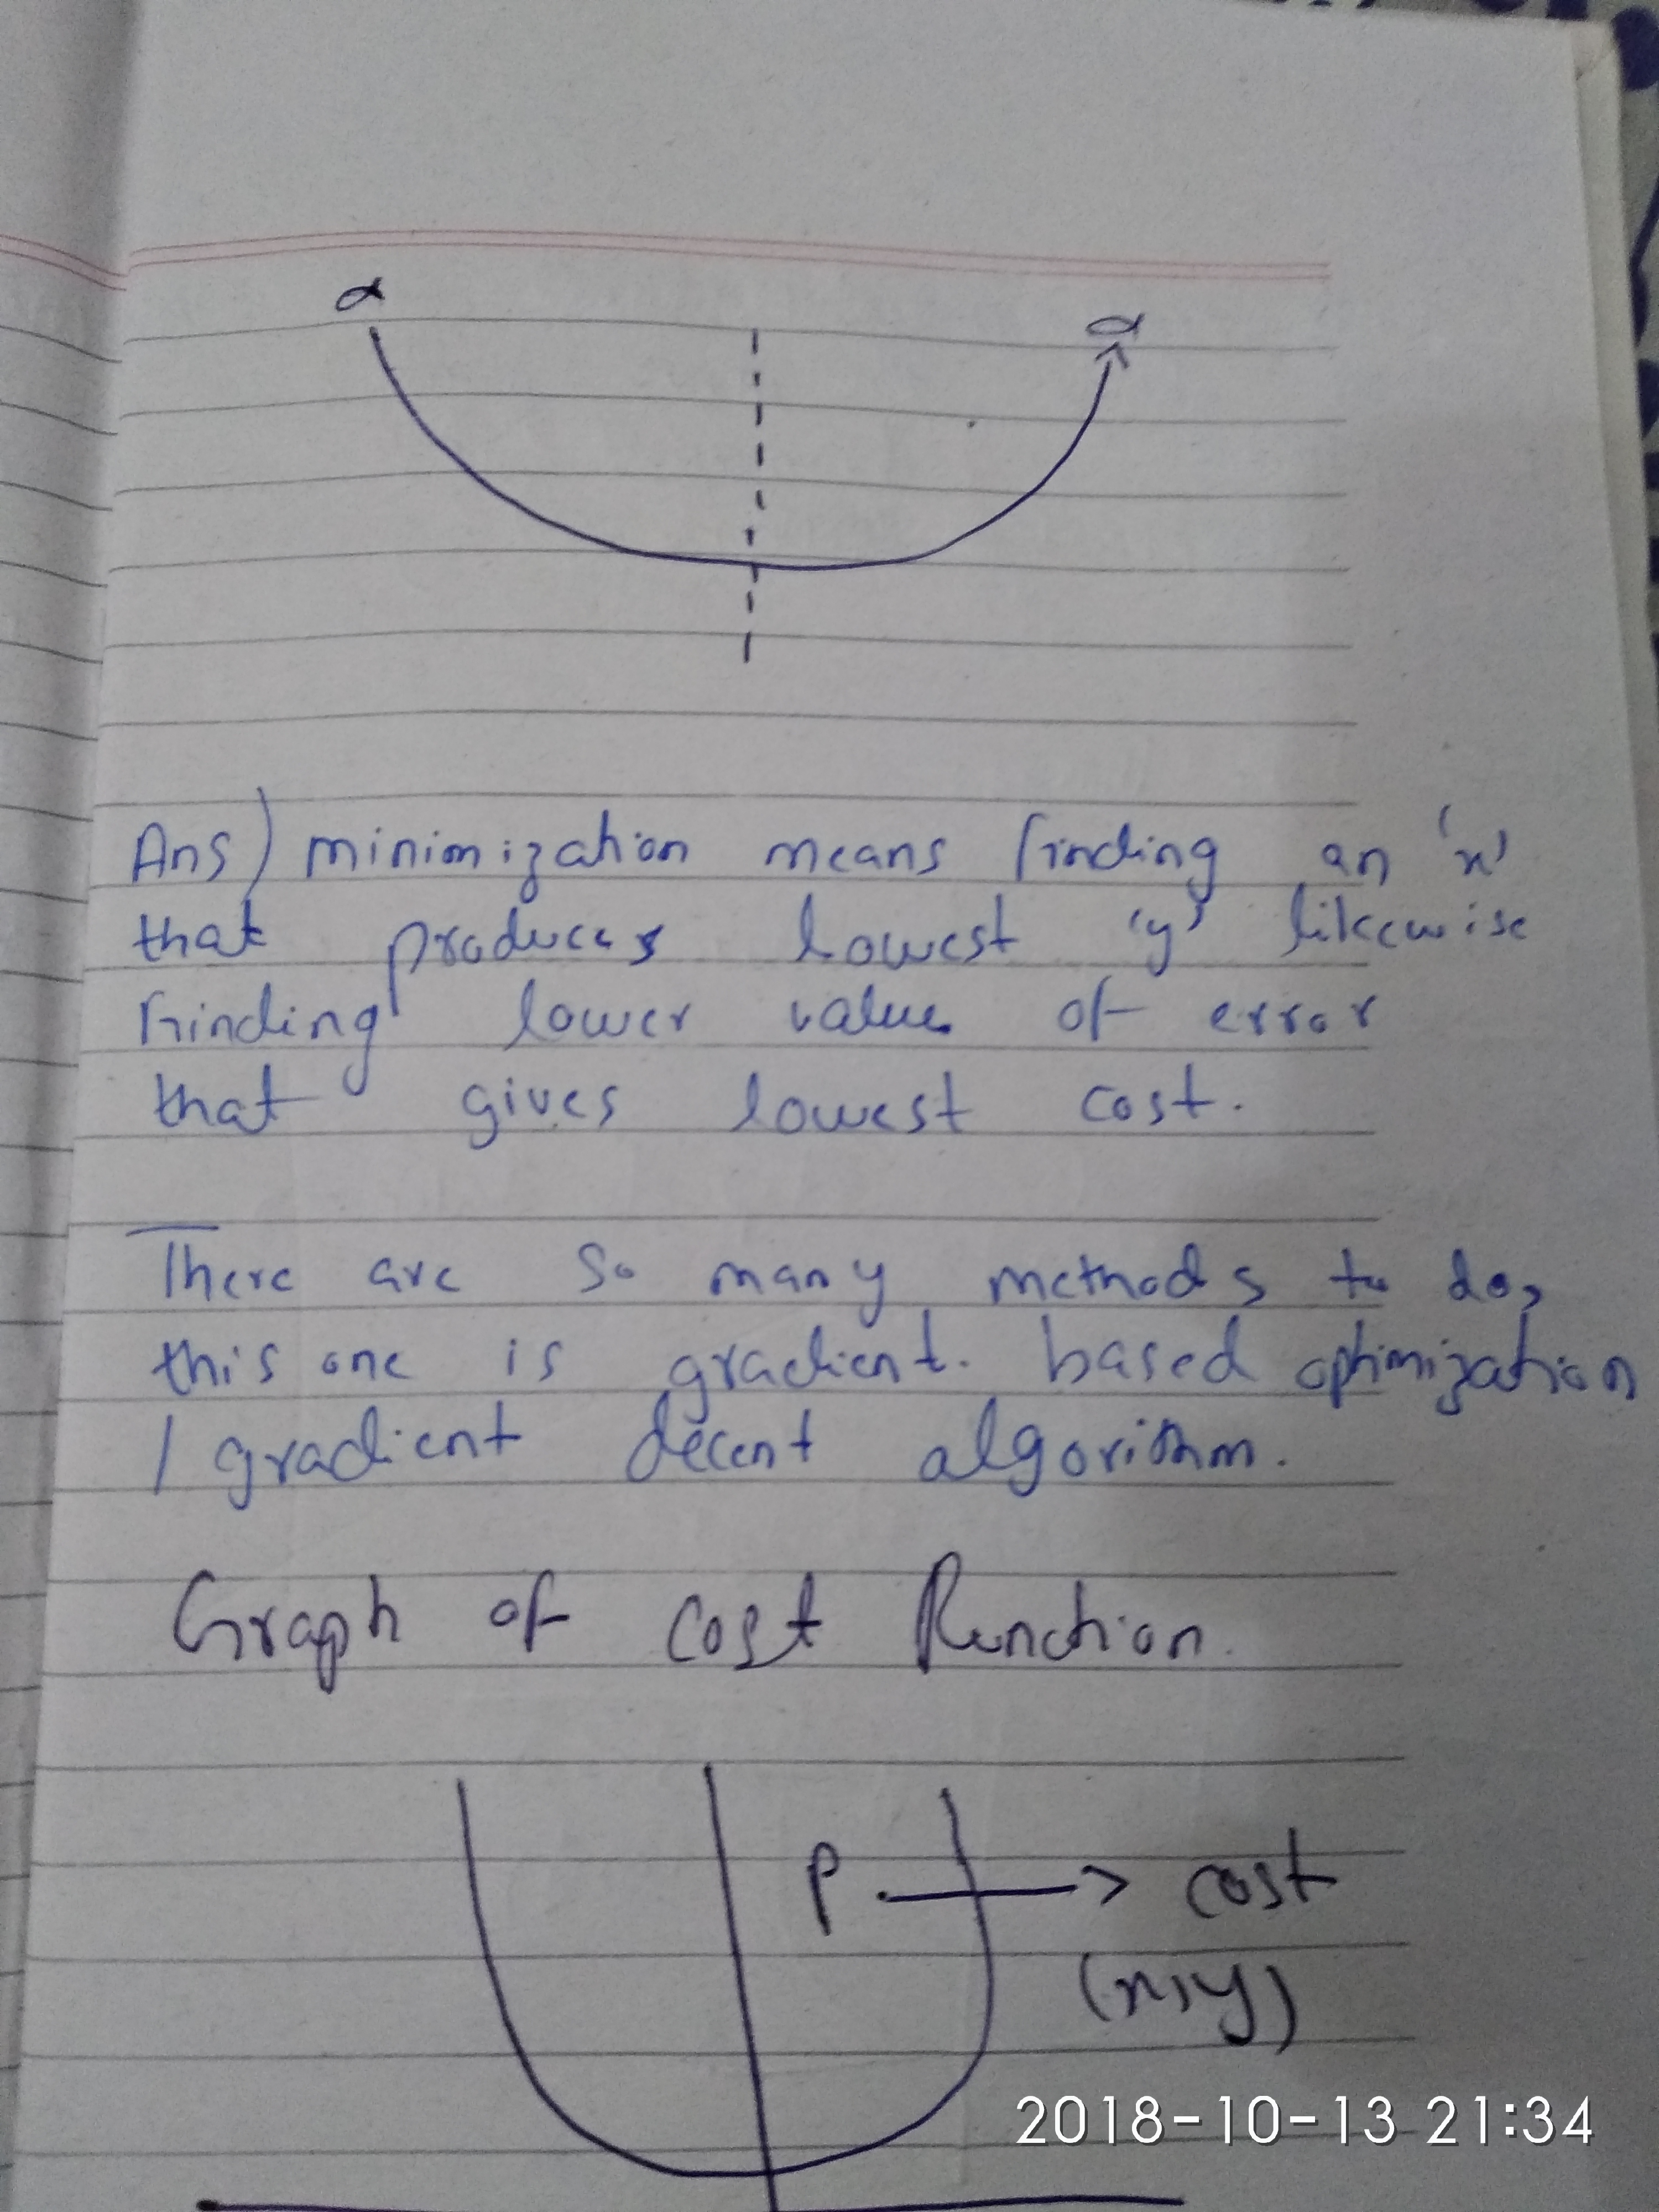 α α
Ans) minimization means finding an 'x'
that produces lowest 'y' likewise
finding lower value of error
that gives lowest cost.
There are so many methods to do,
this one is gradient. based optimization
/ gradient decent algorithm.
Graph of cost function.
P → cost
(x,y)
2018-10-13 21:34